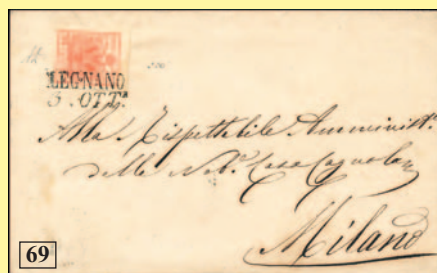 LEGNANO
3. OTT.ᵉ
Alla Rispettabile Amminist.ᵉ
della N.ᵉ Casa Cagnola
Milano
69